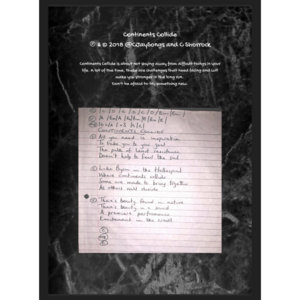 Continents Collide
℗ & © 2018 @CJaySongs and C Shorrock
Continents Collide is about not shying away from difficult things in your
life. A lot of the time, these are challenges that need facing and will
make you stronger in the long run.
Can't be afraid to try something new.
CONTINENTS COLLIDE
① All you need is inspiration
To guide you to your goal
The path of least resistance
Doesn't help to feed the soul
② Like Byron in the Hellespont
Where continents collide
Some are made to bring together
As others will divide
③ There's beauty found in nature
There's beauty in a sound
A premiere performance
Excitement in the crowd